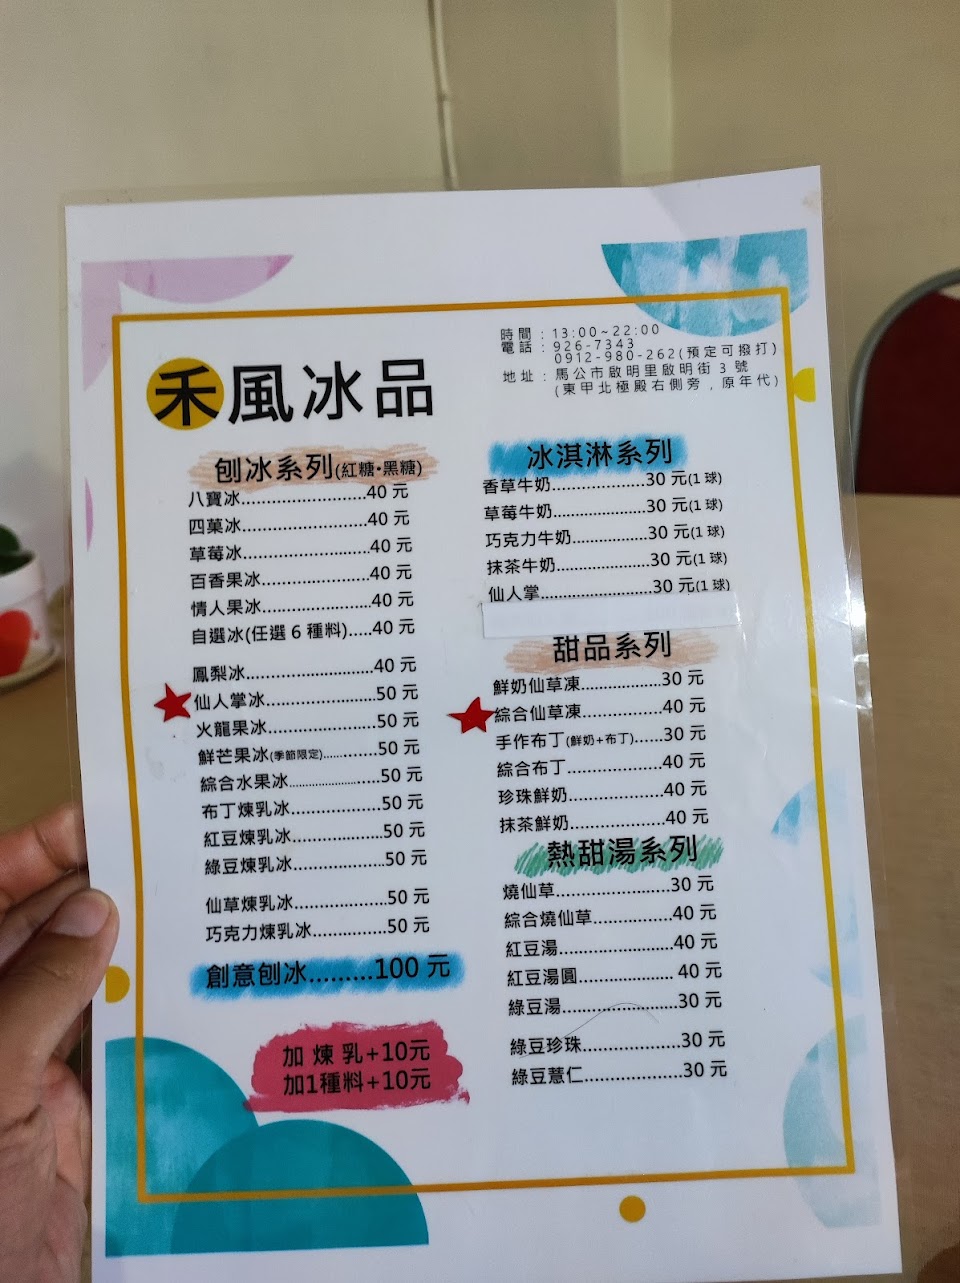 禾風冰品
時間：13:00~22:00
電話：926-7343
0912-980-262(預定可撥打)
地址：馬公市啟明里啟明街 3 號
(東甲北極殿右側旁，原年代)
刨冰系列(紅糖•黑糖)
八寶冰........................40 元
四菓冰........................40 元
草莓冰........................40 元
百香果冰.....................40 元
情人果冰.....................40 元
自選冰(任選 6 種料).....40 元
鳳梨冰........................40 元
仙人掌冰.....................50 元
火龍果冰.....................50 元
鮮芒果冰(季節限定)............50 元
綜合水果冰.....................50 元
布丁煉乳冰.................50 元
紅豆煉乳冰.................50 元
綠豆煉乳冰.................50 元
仙草煉乳冰.................50 元
巧克力煉乳冰..............50 元
創意刨冰.........100 元
加 煉 乳+10元
加1種料+10元
冰淇淋系列
香草牛奶..................30 元(1 球)
草莓牛奶..................30 元(1 球)
巧克力牛奶...............30 元(1 球)
抹茶牛奶..................30 元(1 球)
仙人掌.....................30 元(1 球)
甜品系列
鮮奶仙草凍...............30 元
綜合仙草凍...............40 元
手作布丁(鮮奶+布丁)......30 元
綜合布丁..................40 元
珍珠鮮奶..................40 元
抹茶鮮奶..................40 元
熱甜湯系列
燒仙草......................30 元
綜合燒仙草................40 元
紅豆湯......................40 元
紅豆湯圓.................. 40 元
綠豆湯......................30 元
綠豆珍珠...................30 元
綠豆薏仁...................30 元